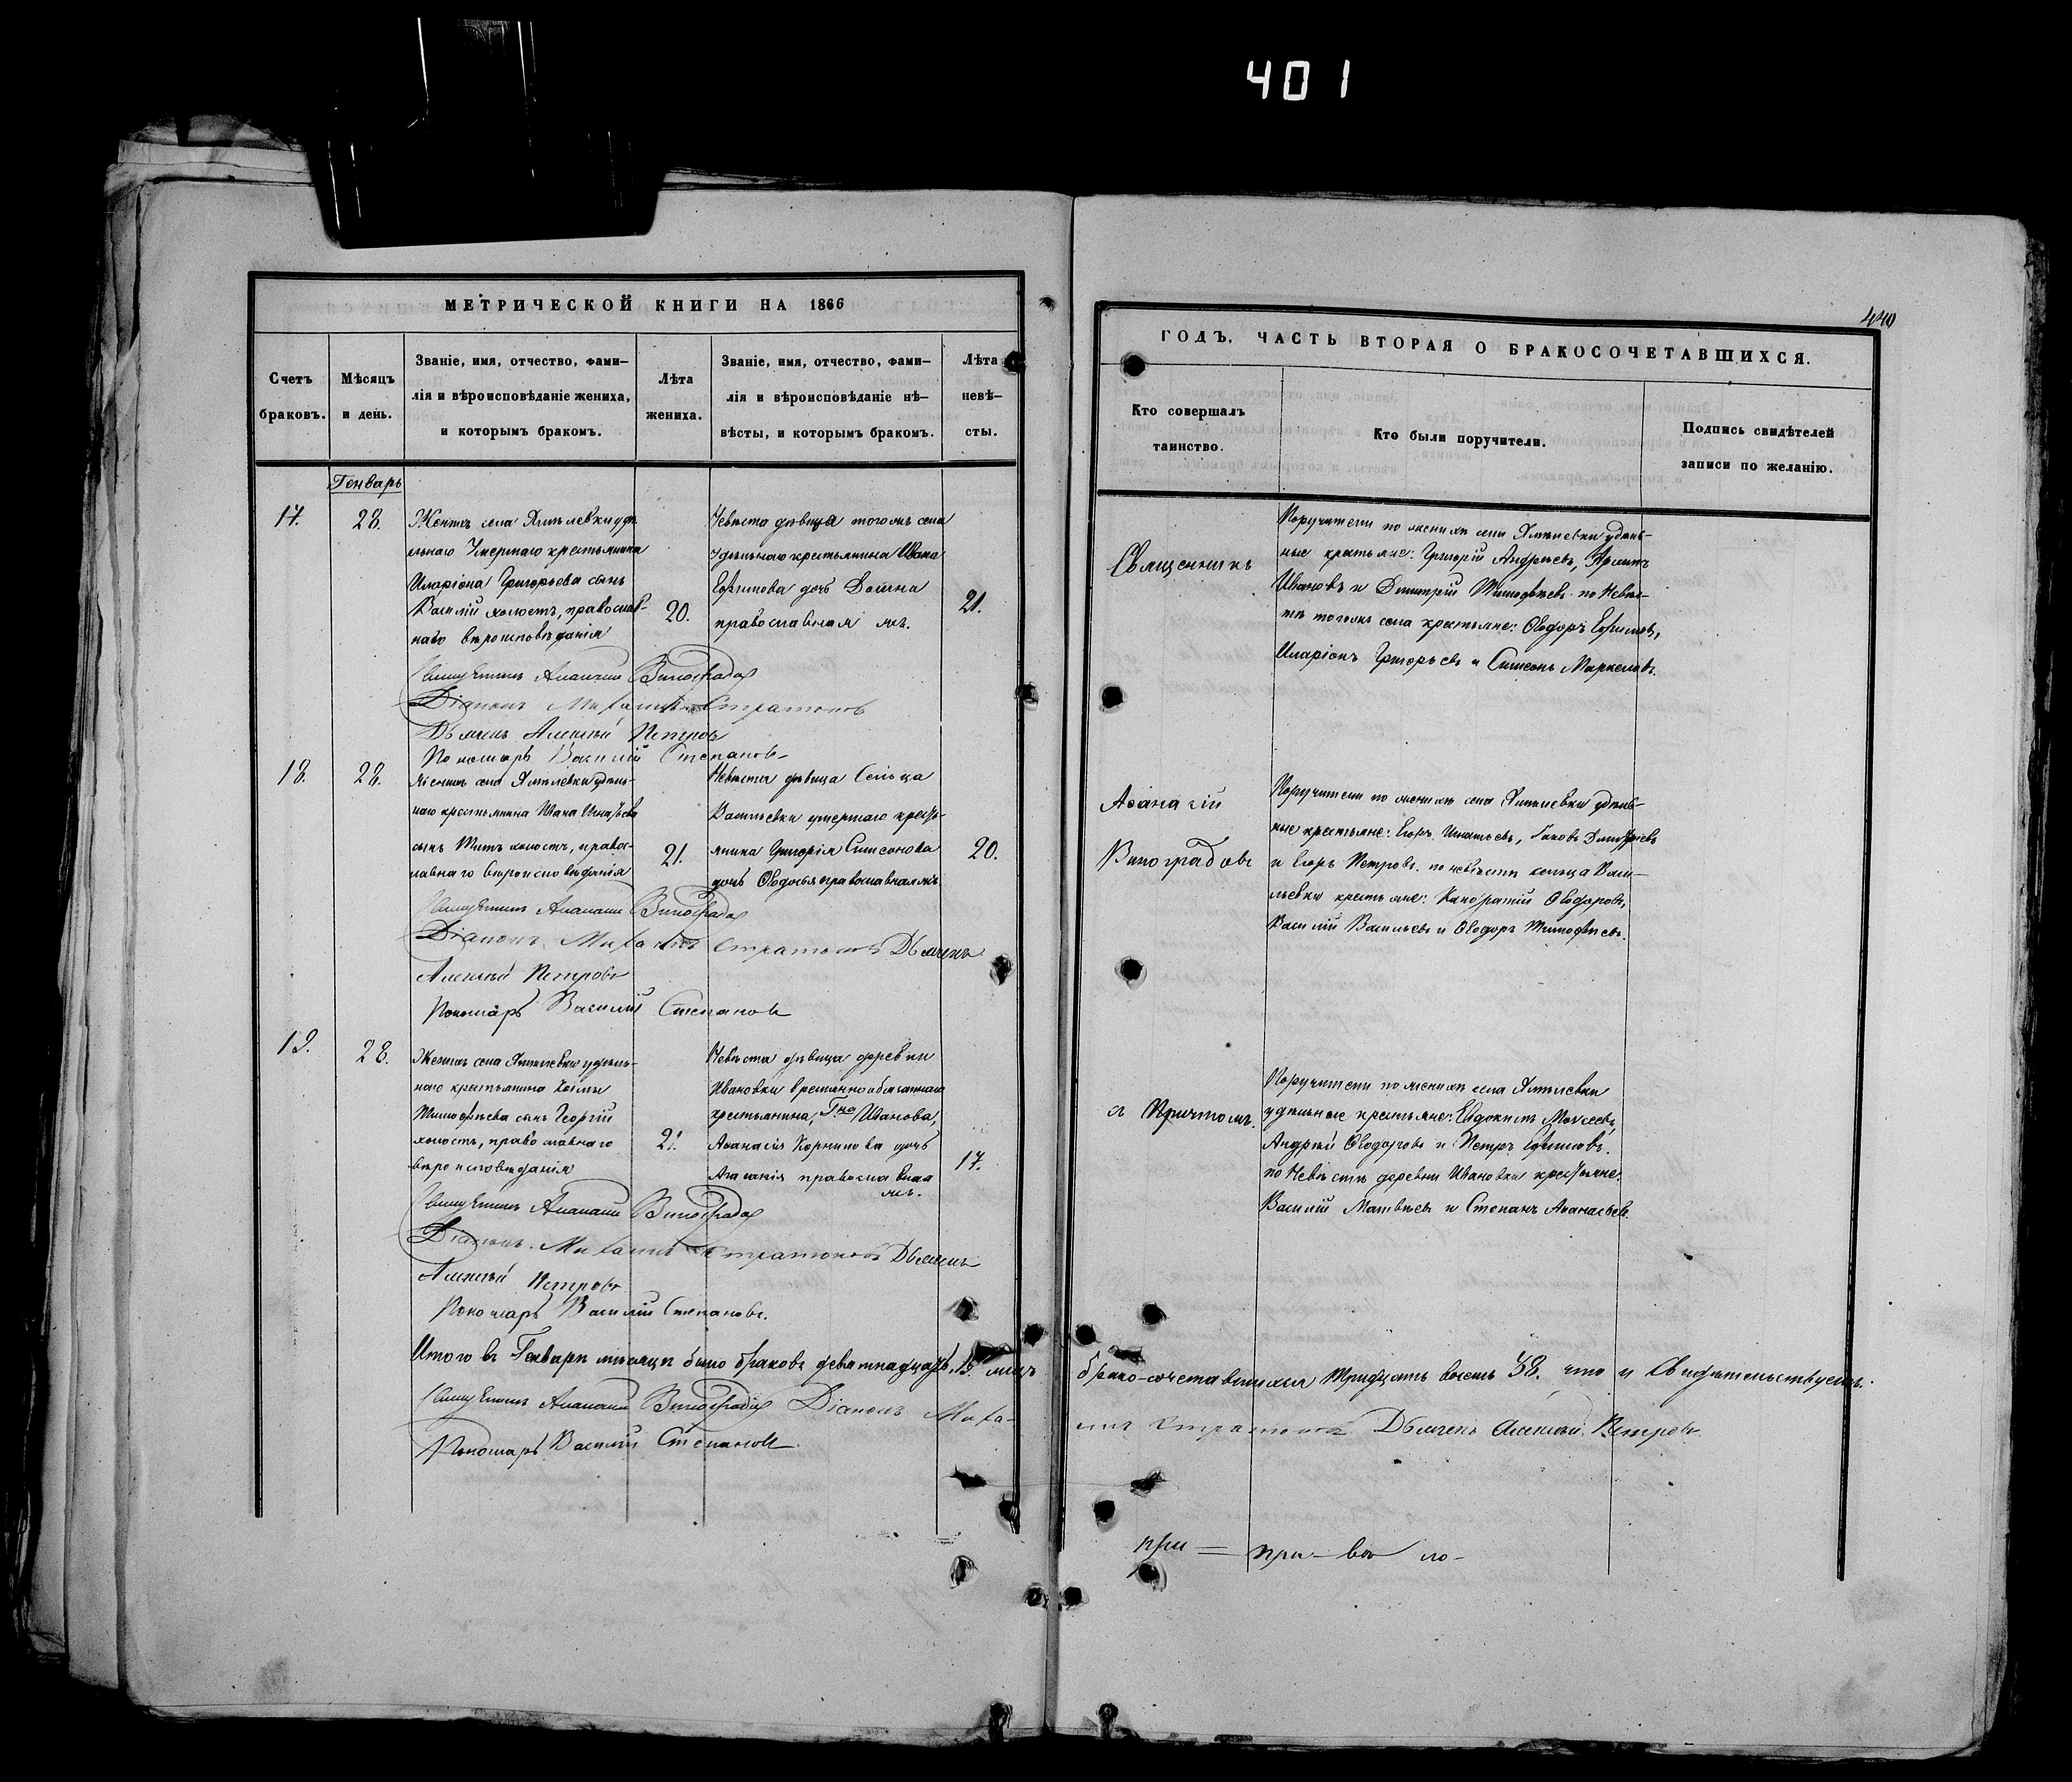 401
МЕТРИЧЕСКОЙ КНИГИ НА 1866
Счетъ браковъ.
Мѣсяцъ и день.
Званіе, имя, отчество, фами-
лія и вѣроисповѣданіе жениха,
и которымъ бракомъ.
Лѣта жениха.
Званіе, имя, отчество, фами-
лія и вѣроисповѣданіе нѣ-
вѣсты, и которымъ бракомъ.
Лѣта невѣ-
сты.
Генварь
17.
28.
Женихъ села удѣ
льнаго Умершаго крестьянина
Иларіона Григорьева сынъ
Василій холостъ, православ-
наго вѣроисповѣданія
20.
Невѣста дѣвица тогожъ села
удѣльнаго крестьянина Ивана
Ефимова дочь Домна
православная
21.
Священникъ Аѳанасій Виноградов
Діаконъ Михаилъ Стратоновъ
Дьячекъ Алексѣй Петровъ
Пономарь Василій Степановъ
18.
28.
Женихъ села удѣль-
наго крестьянина Ивана Игнатьева
сынъ Титъ холостъ, правос-
лавнаго вѣроисповѣданія
21.
Невѣста дѣвица Сельца
Васильевки умершаго кресть-
янина Григорія Симеонова
дочь Ѳеодосья православная
20.
Священникъ Аѳанасій Виноградов
Діаконъ Михаилъ Стратоновъ Дьячекъ
Алексѣй Петровъ
Пономарь Василій Степановъ
19.
28.
Женихъ села удѣль-
наго крестьянина
Тимоѳѣева сынъ Георгій
холостъ, православнаго
вѣроисповѣданія
21.
Невѣста дѣвица деревни
Ивановки временнообязаннаго
крестьянина, Г-на Иванова,
Аѳанасія Корнилова дочь
Агаѳія православная
17.
Священникъ Аѳанасій Виноградов
Діаконъ Михаилъ Стратоновъ Дьячекъ
Алексѣй Петровъ
Пономарь Василій Степановъ.
Итого въ Генварѣ мѣсяцѣ было браковъ девятнадцать, 19. лицъ
Священникъ Аѳанасій Виноградов Діаконъ Миха-
Пономарь Василій Степановъ
440
ГОДЪ. ЧАСТЬ ВТОРАЯ О БРАКОСОЧЕТАВШИХСЯ.
Кто совершалъ таинство.
Кто были поручители.
Подпись свидѣтелей записи по желанію.
Священникъ
Поручители по женихѣ села удѣль-
ные крестьяне: Григорій Андреевъ,
Ивановъ и Димитрій Тимоѳѣевъ. по Невѣ-
стѣ тогожъ села крестьяне: Ѳеодоръ Ефимовъ,
Иларіонъ Григорьевъ и Симеонъ Маркеловъ.
Аѳанасій
Виноградовъ
Поручители по женихѣ села удѣль-
ные крестьяне: Егоръ Игнатьевъ, Яковъ Димитріевъ
и Егоръ Петровъ. по невѣстѣ сельца Васи-
льевки крестьяне: Ѳеодоровъ,
Василій Васильевъ и Ѳеодоръ Тимоѳѣевъ.
съ Причтомъ.
Поручители по женихѣ села
удѣльные крестьяне: Евдокимъ Моисеевъ,
Андрей Ѳеодоровъ и Петръ Ефимовъ.
по Невѣстѣ деревни Ивановки крестьяне:
Василій Матвѣевъ и Степанъ Аѳанасьевъ.
брако-сочетавшихся тридцать восемь 38. что и Свидѣтельствуемъ.
илъ Стратоновъ Дьячекъ Алексѣй Петровъ
при = при-